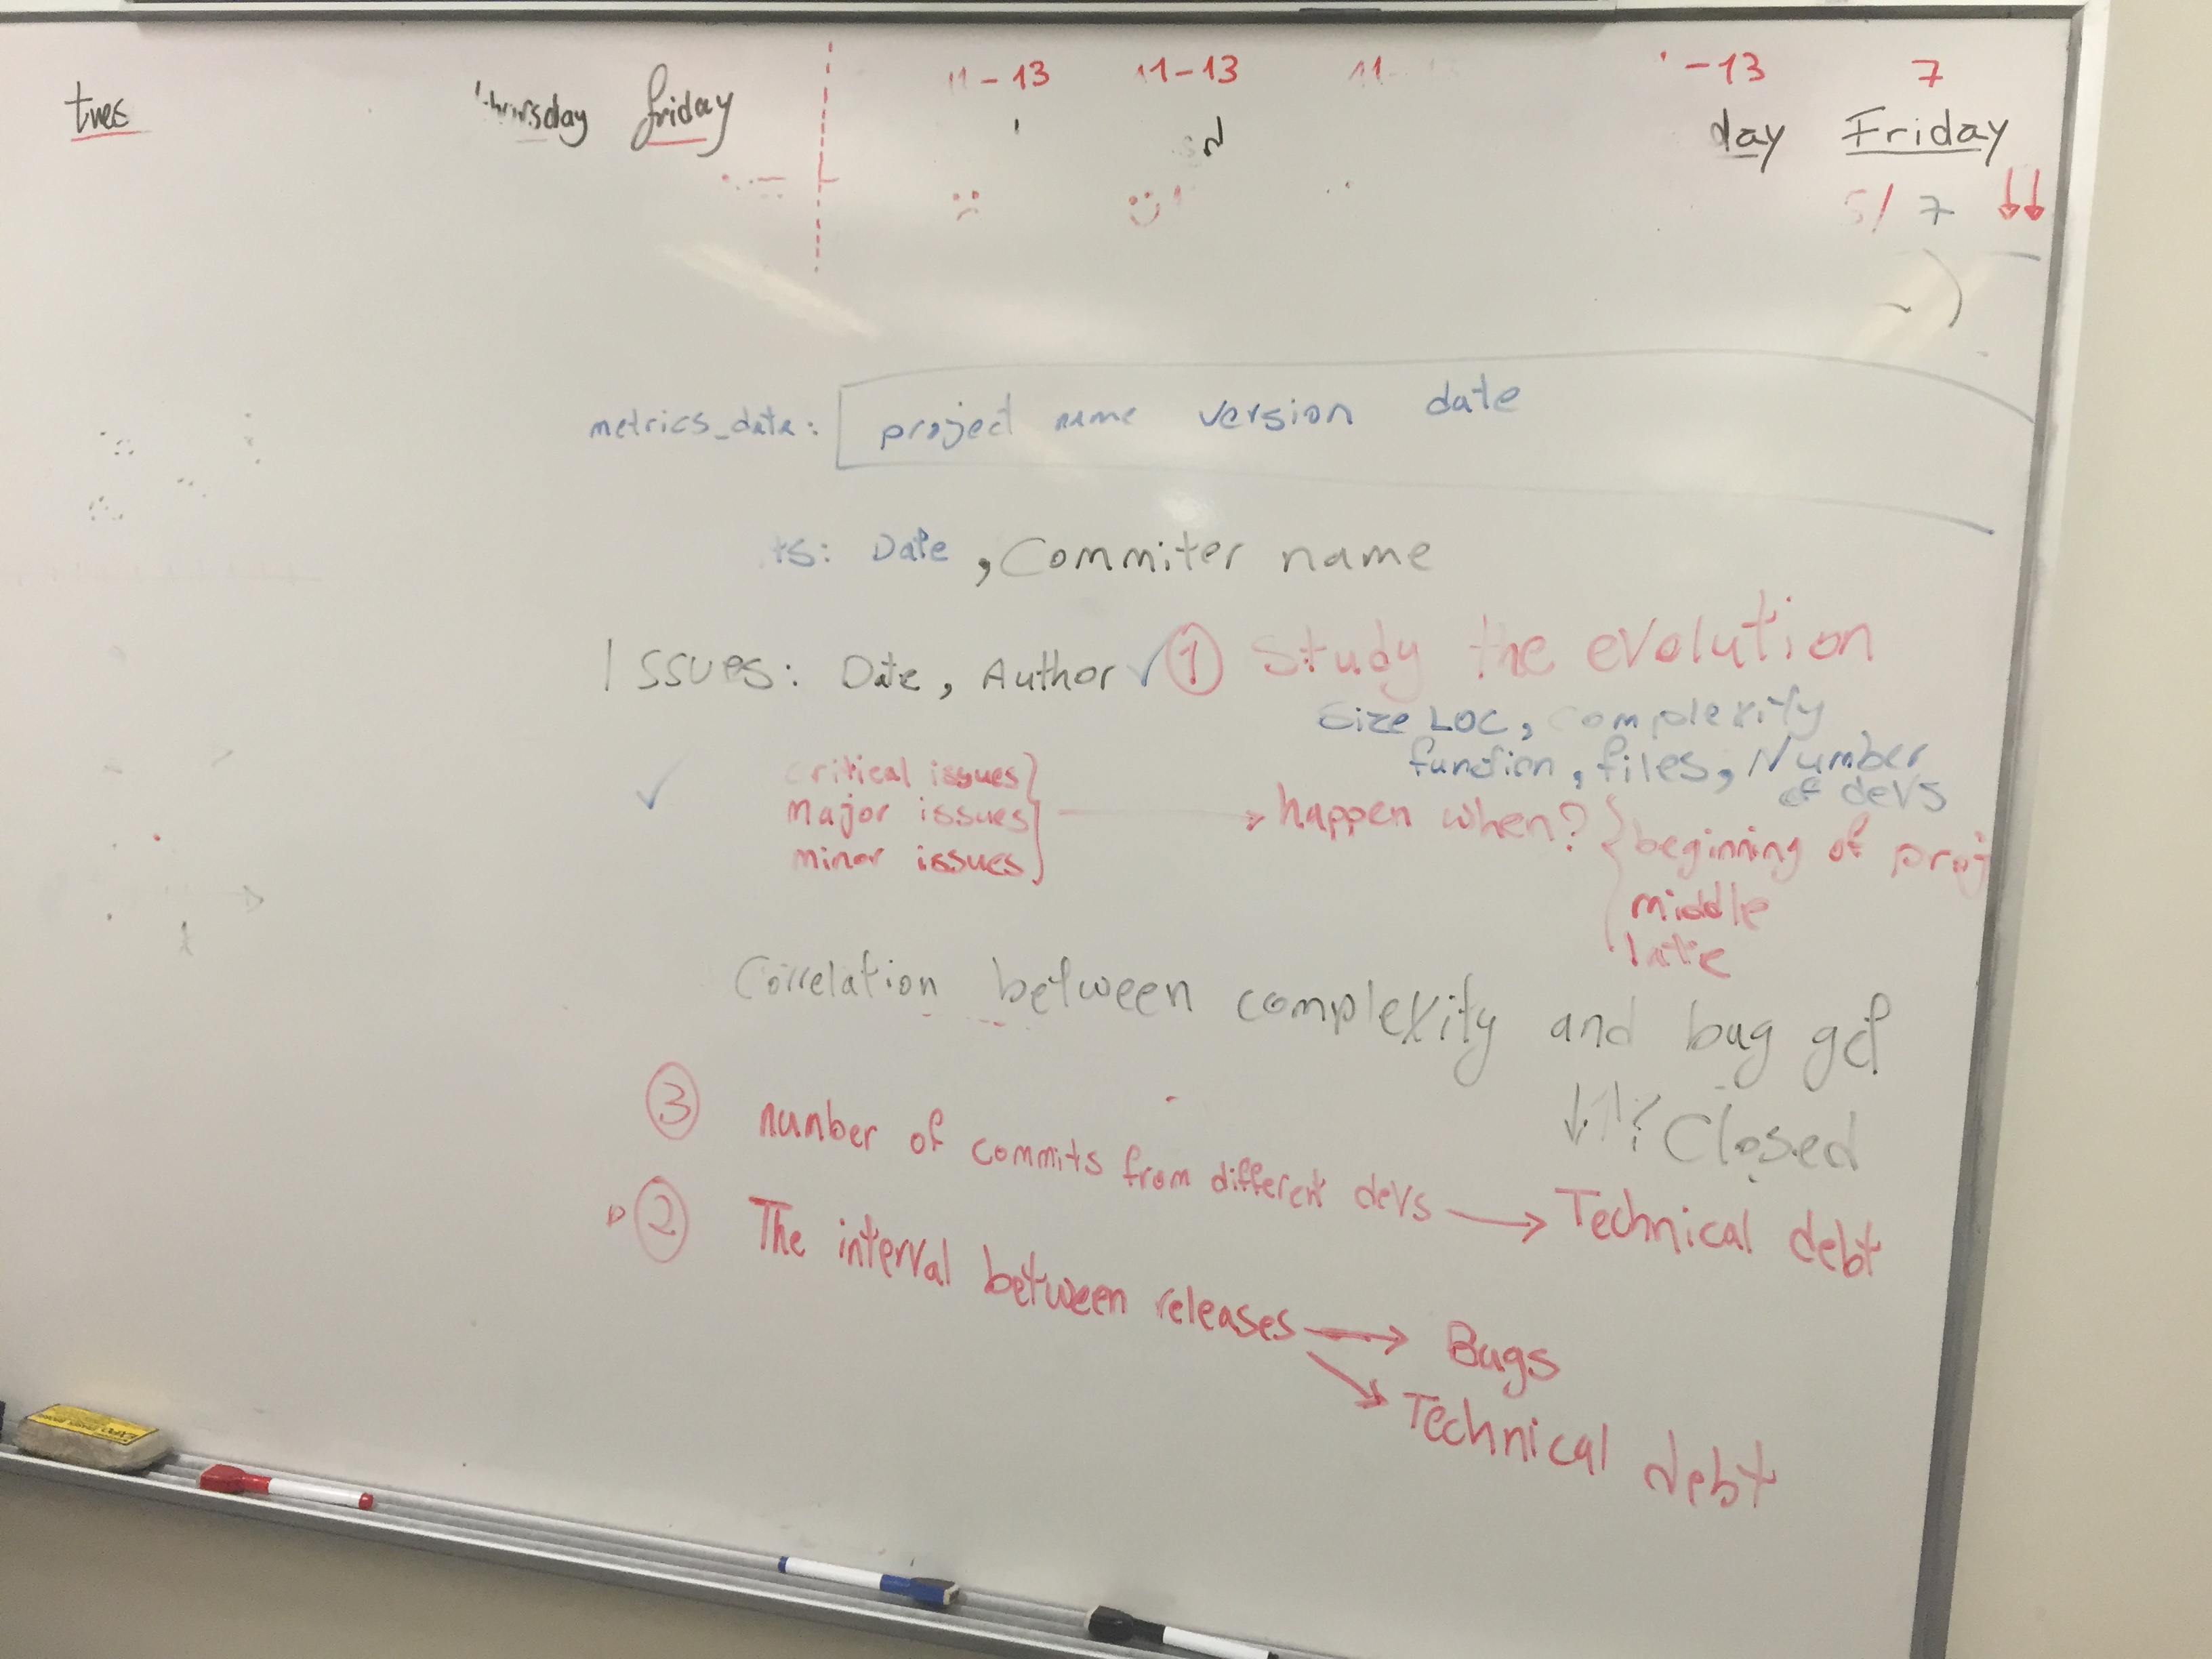 11-13 11-13 11 -13 7
tues thursday friday day Friday
7
metrics_data: project name version date
ts: Date, Commiter name
Issues: Date, Author ✓ ① Study the evolution
Size LOC, complexity
function, files, Number
of devs
✓ critical issues
major issues → happen when? beginning of proj
minor issues middle
late
Correlation between complexity and bug get
closed
③ number of commits from different devs → Technical debt
② The interval between releases → Bugs
Technical debt